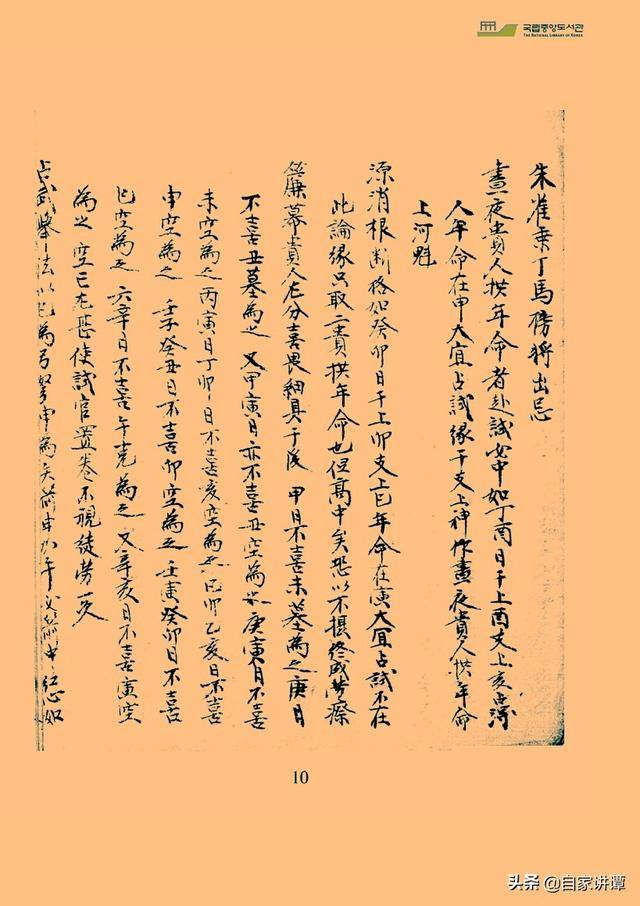 국립중앙도서관
THE NATIONAL LIBRARY OF KOREA
朱雀乘丁馬榜將出忌
晝夜貴人拱年命者赴試必中如丁酉日干上酉支上亥占得
人年命在申大宜占試緣干支上神作晝夜貴人拱年命
上河魁
源消根断格如癸卯日干上卯支上巳年命在寅大宜占試不在
此論緣只取二貴拱年命也但高中矣恐以不攝終成勞瘵
簾幕貴人尤分喜畏細具于後 甲日不喜未墓為之庚日
不喜丑墓為之 又甲寅日亦不喜丑空為之 庚寅日不喜
未空為之 丙寅日丁卯日不喜亥空為之 己卯乙亥日不喜
申空為之 壬子癸丑日不喜卯空為之 壬寅癸卯日不喜
巳空為之 六辛日不喜午克為之 又辛亥日不喜寅空
為之 空亡尤甚使試官置卷不視徒勞一天
占武舉法以巳為弓弩申為矢箭申加午必箭中紅心如
10
头条 @自家讲谭